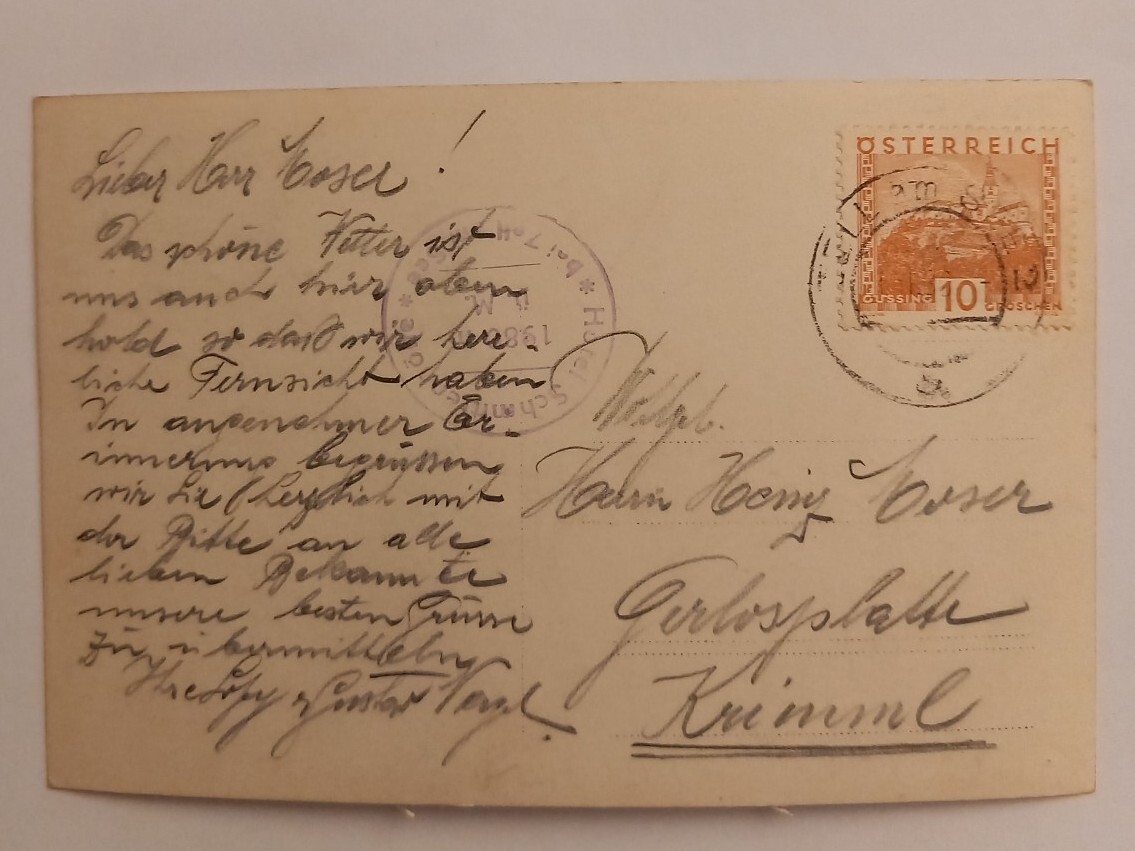 Lieber Herr Moser!
Das schöne Wetter ist
uns auch hier oben
hold so daß wir herr-
liche Fernsicht haben
In angenehmer Er-
innerung begrüssen
wir Sie herzlich mit
der Bitte an alle
lieben Bekannte
unsere besten Grüsse
zu übermitteln
Ihre Gustav
ÖSTERREICH
GÜSSING 10 GROSCHEN
ZELL am S
* Hotel Schmittenhöhe * bei Zell
1968
ü. M.
Wolgb.
Herrn Heinz Moser
Gerlosplatte
Krimml